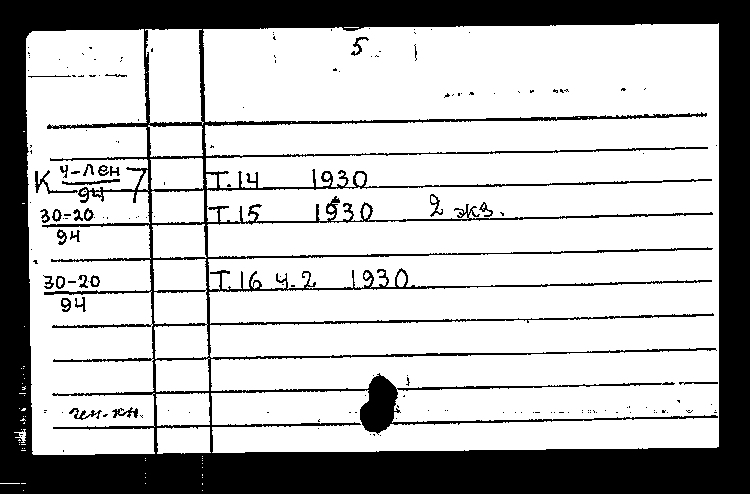 5
К ч-лен/94 7 Т.14 1930
30-20/94 Т.15 1930 2 экз.
30-20/94 Т.16 ч.2 1930.
ген.кн.